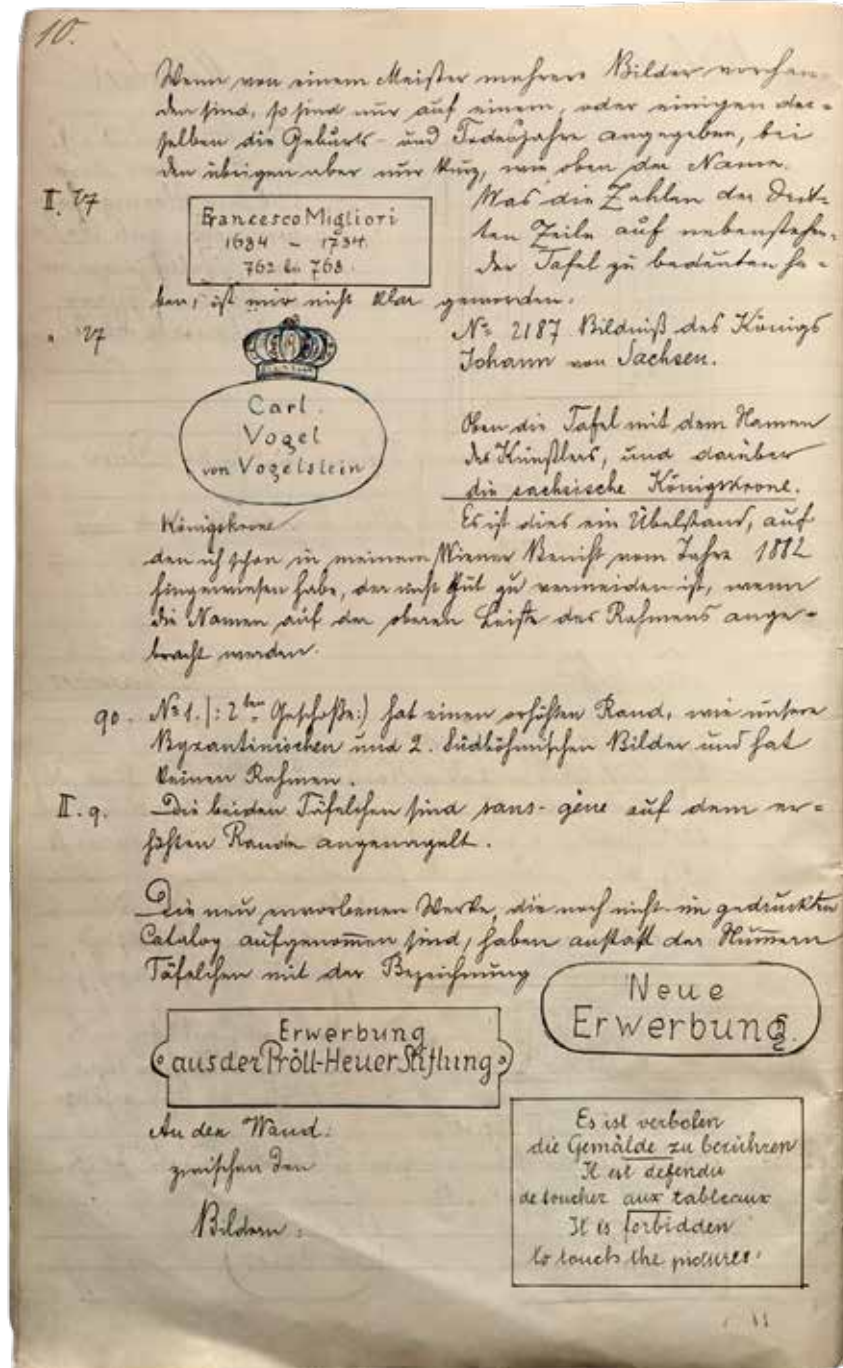 10.
Wenn von einem Meister mehrere Bilder vorhan-
den sind, so sind nur auf einem, oder einigen der-
selben die Geburts- und Todesjahre angegeben, bei
den übrigen aber nur kurz, wie oben der Name.
II. 27
Francesco Migliori
1684 – 1734.
762 bis 768.
Was die Zahlen der Drit-
ten Zeile auf nebenstehen-
der Tafel zu bedeuten ha-
ben, ist mir nicht klar geworden.
" 27
Carl
Vogel
von Vogelstein
Königskrone
No 2187 Bildniß des Königs
Johann von Sachsen.
Oben die Tafel mit dem Namen
des Künstlers, und darüber
die sachsische Königskrone.
Es ist dies ein Übelstand, auf
den ich schon in meinem Wiener Bericht vom Jahre 1882
hingewiesen habe, der nicht gut zu vermeiden ist, wenn
die Namen auf der oberen Leiste des Rahmens ange-
bracht werden.
No 1. |: 2ten Geschoße:) hat einen erhöhten Rand, wie unsere
Byzantinischen und 2. Südböhmischen Bilder und hat
keinen Rahmen.
II. 9.
Die beiden Täfelchen sind sans-gêne auf dem er-
höhten Rande angenagelt.
Die neu erworbenen Werke, die noch nicht im gedruckten
Catalog aufgenom̄en sind, haben anstatt der Num̄ern
Täfelchen mit der Bezeichnung
Neue
Erwerbung
Erwerbung
aus der Pröll-Heuer Stiftung
An der Wand:
zwischen den
Bildern:
Es ist verboten
die Gemälde zu berühren
Il est defendu
de toucher aux tableaux
It is forbidden
to touch the pictures
11